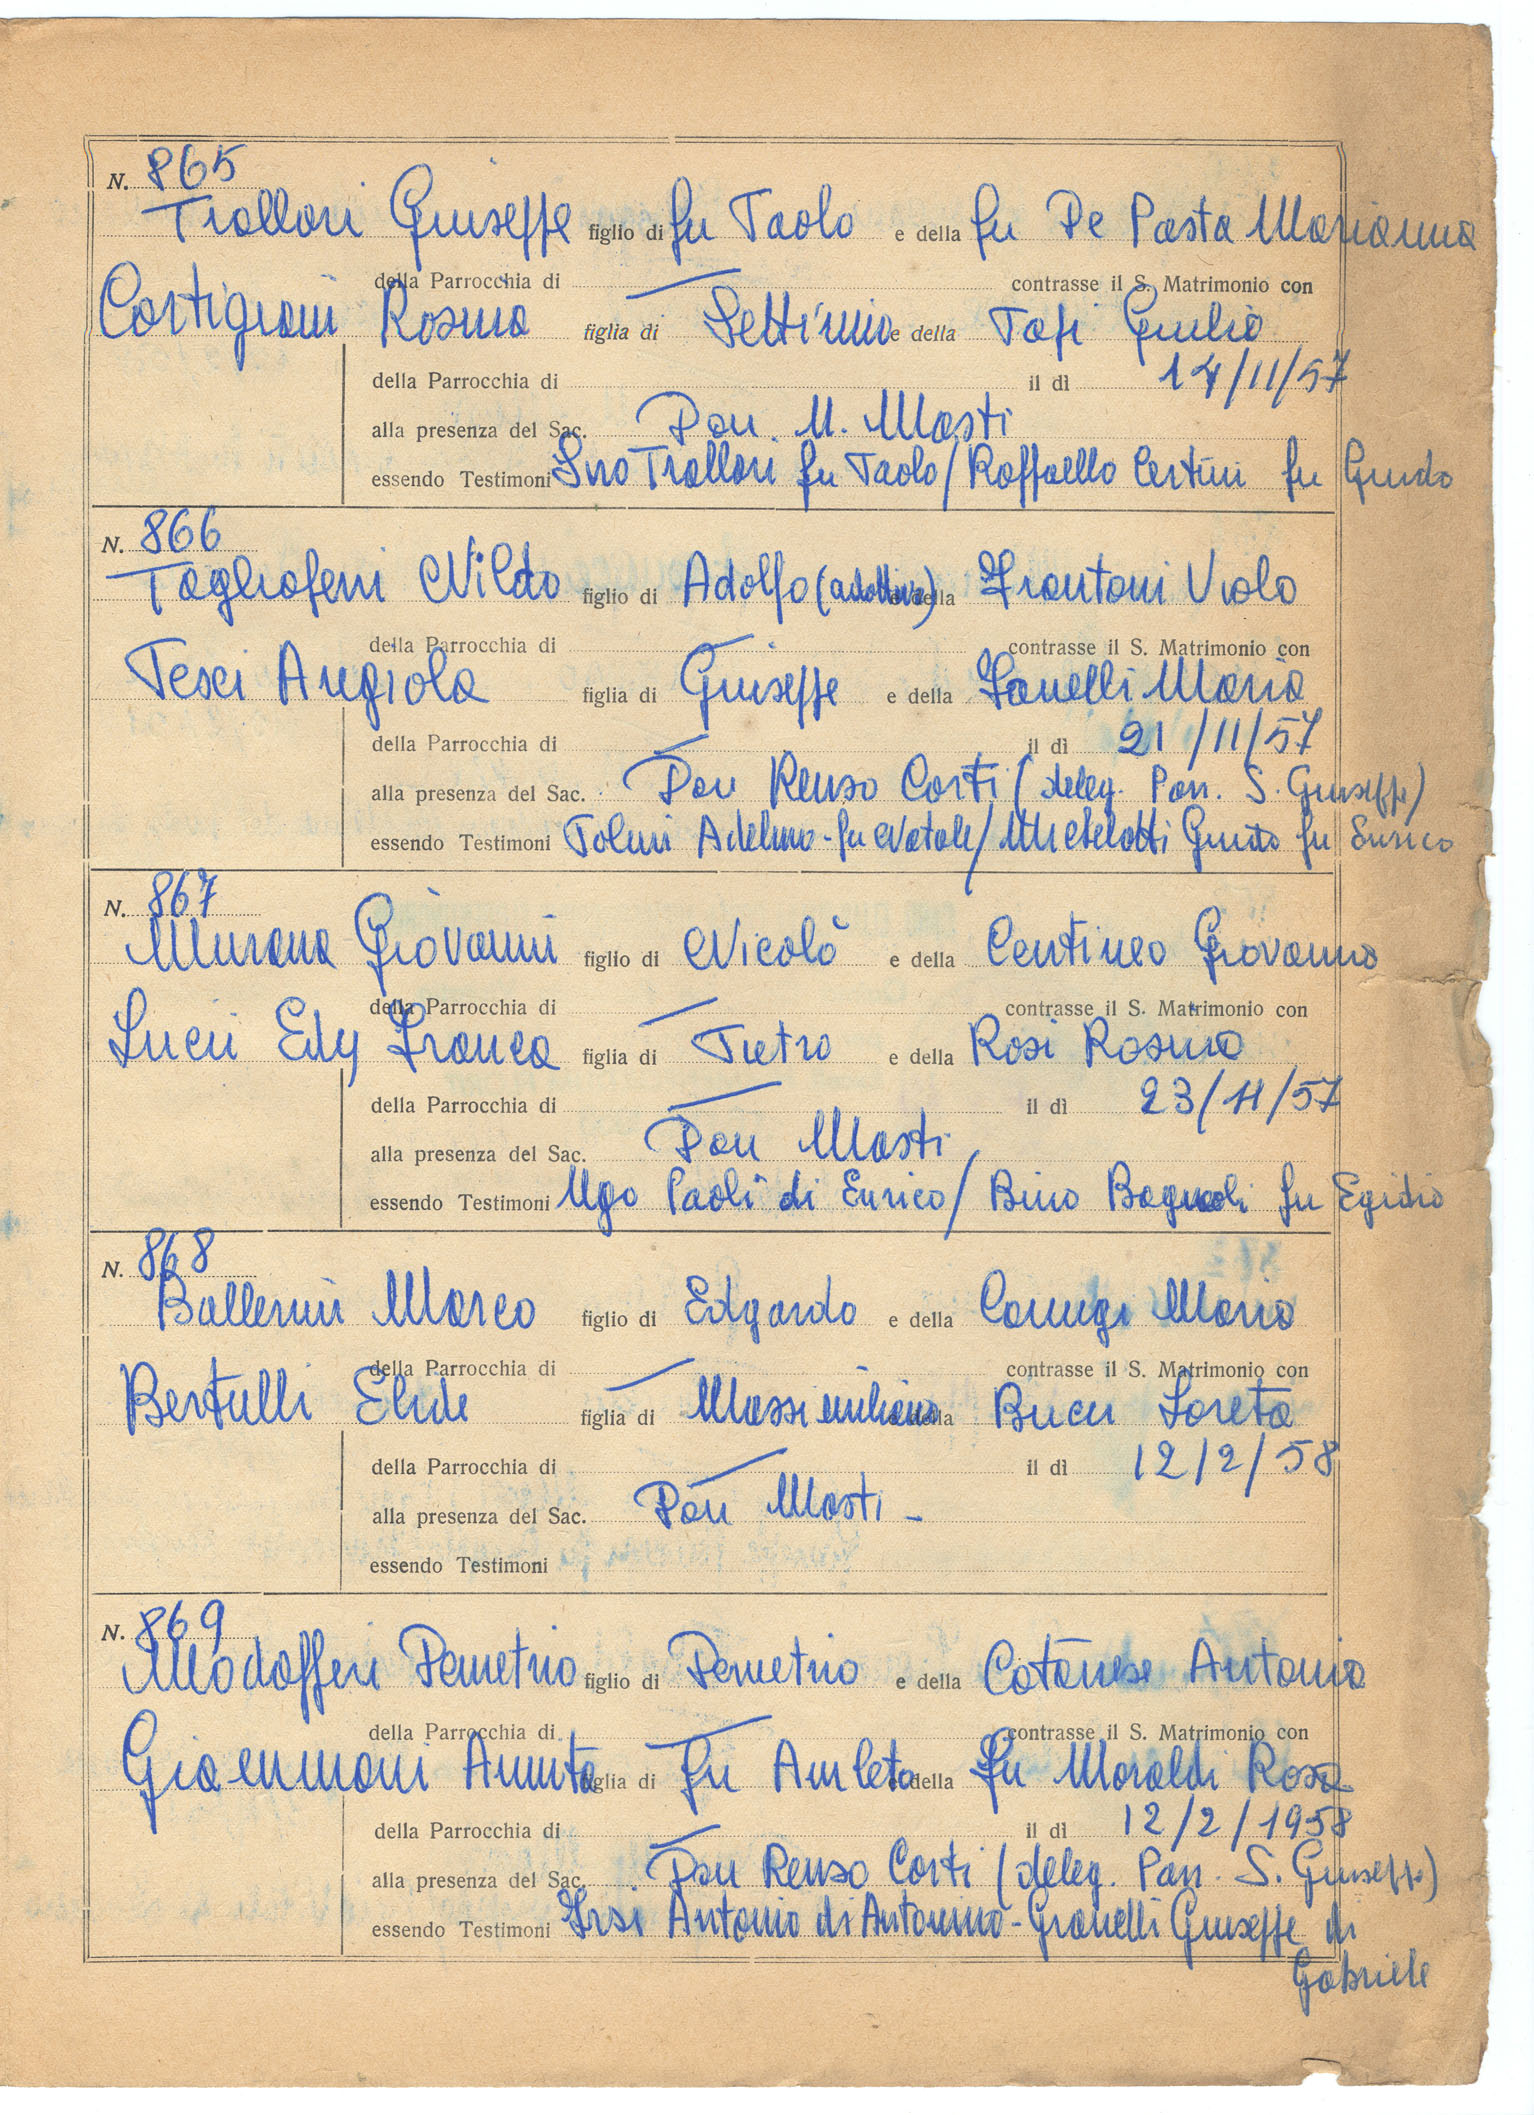 N. 865
Trallori Giuseppe figlio di fu Paolo e della fu De Pasta Marianna
della Parrocchia di contrasse il S. Matrimonio con
Cortigiani Rosina figlia di Settimio e della Tafi Giulia
della Parrocchia di il dì 14/11/57
alla presenza del Sac. Don. M. Masti
essendo Testimoni Trallori fu Paolo / Raffaello Certini fu Guido
N. 866
Tagliaferri Nildo figlio di Adolfo (adottivo) e della Frontani Viola
della Parrocchia di contrasse il S. Matrimonio con
Pesci Angiola figlia di Giuseppe e della Fanelli Maria
della Parrocchia di il dì 21/11/57
alla presenza del Sac. Don Renso Corti (deleg. Parr. S. Giuseppe)
essendo Testimoni Adelmo - fu Natale / Michelotti Guido fu Enrico
N. 867
Murana Giovanni figlio di Nicolò e della Centineo Giovanna
della Parrocchia di contrasse il S. Matrimonio con
Lucii Edy Franca figlia di Pietro e della Rosi Rosina
della Parrocchia di il dì 23/11/57
alla presenza del Sac. Don Masti
essendo Testimoni Ugo Paoli di Enrico / Bino Bagnoli fu Egidio
N. 868
Ballerini Marco figlio di Edgardo e della Maria
della Parrocchia di contrasse il S. Matrimonio con
Bertulli Elide figlia di Massimiliano e della Bucci Loreta
della Parrocchia di il dì 12/2/58
alla presenza del Sac. Don Masti -
essendo Testimoni
N. 869
Modafferi Demetrio figlio di Demetrio e della Catanese Antonia
della Parrocchia di contrasse il S. Matrimonio con
Annita figlia di fu Amleto e della fu Moraldi Rosa
della Parrocchia di il dì 12/2/1958
alla presenza del Sac. Don Renso Corti (deleg. Parr. S. Giuseppe)
essendo Testimoni Antonio di Antonino - Granelli Giuseppe di
Gabriele